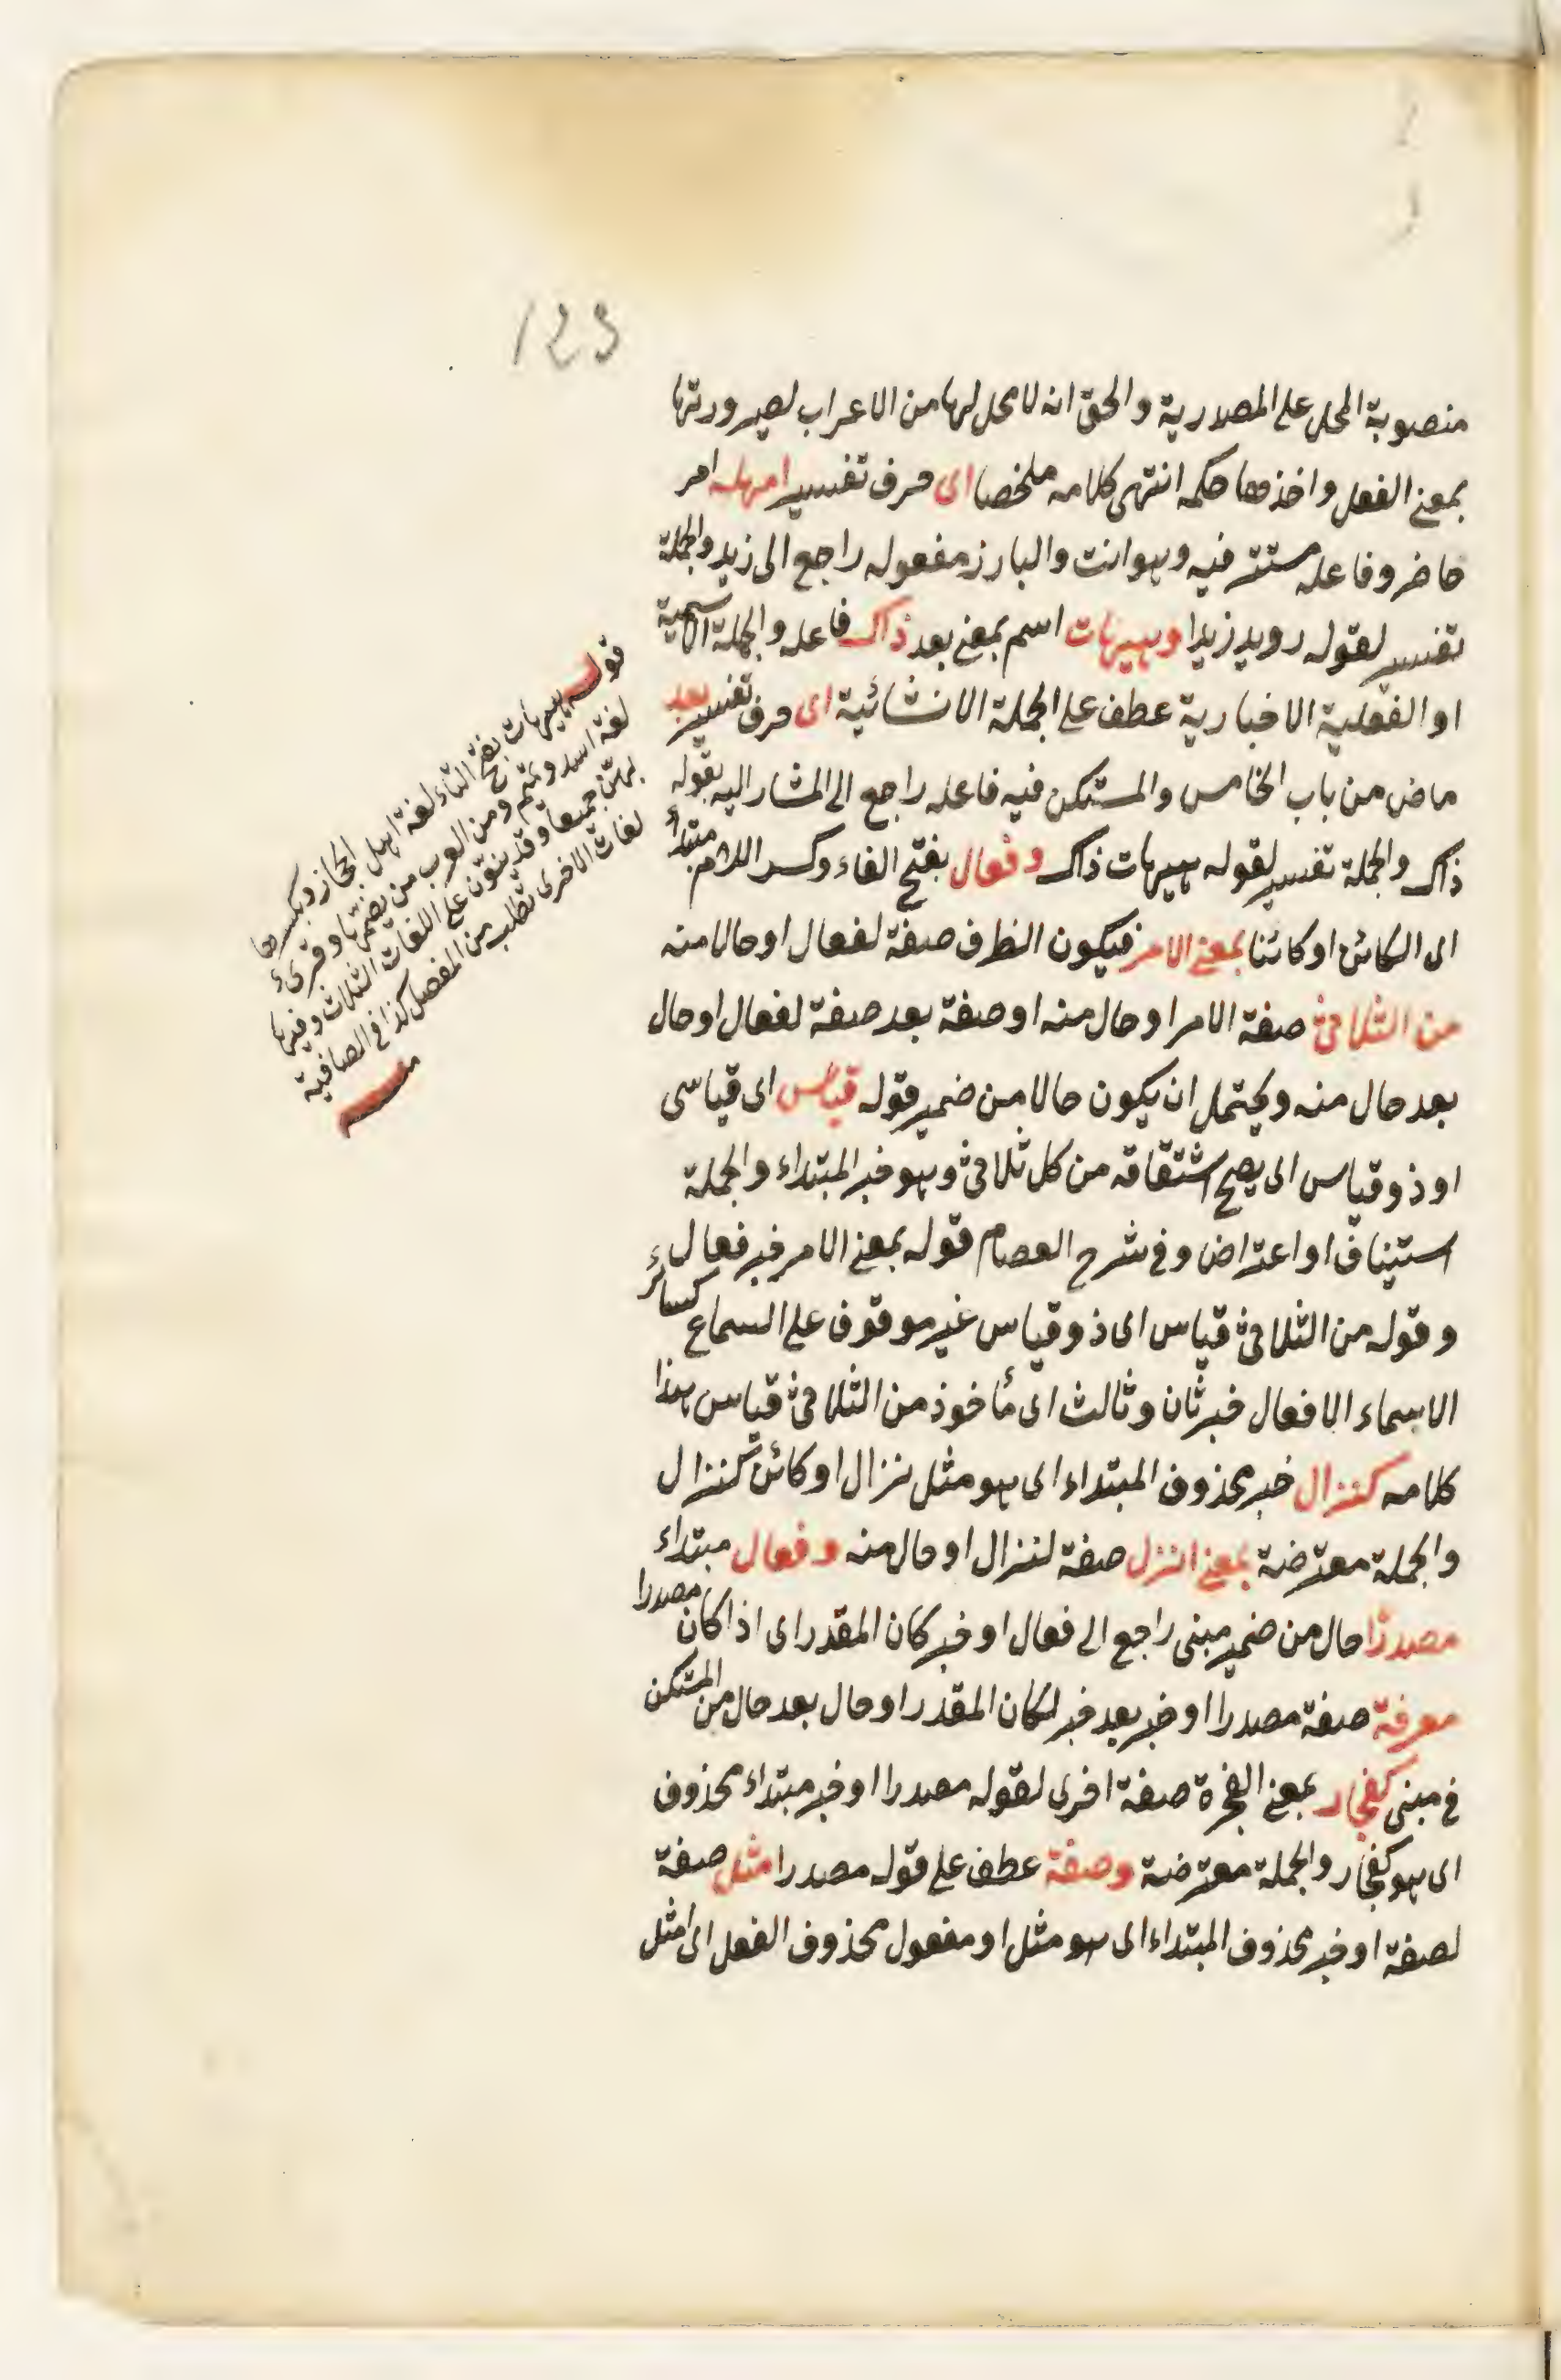 123
منصوبة المحل على المصدرية والحق انه لا محل لها من الاعراب لصيرورتها
بمعنى الفعل واخذها حكمه انتهى كلامه ملخصا اى حرف تفسير امهله امر
حاضر وفاعله مستتر فيه وهو انت والبارز مفعوله راجع الى زيد والجملة
تفسير لقوله رويد زيدا وهيهات اسم بمعنى بعد ذاك فاعله والجملة الاسمية
او الفعلية الاخبارية عطف على الجملة الانشائية اى حرف تفسير بعد
ماض من باب الخامس والمستكن فيه فاعله راجع الى المشار اليه بقوله
ذاك والجملة تفسير لقوله هيهات ذاك وفعال بفتح الفاء وكسر اللام مبتداء
اى الكائن او كائنا بمعنى الامر فيكون الظرف صفة لفعال او حالا منه
من الثلاثى صفة الامر او حال منه او صفة بعد صفة لفعال او حال
بعد حال منه ويحتمل ان يكون حالا من ضمير قوله قياس اى قياسى
او ذو قياس اى يصح اشتقاقه من كل ثلاثى وهو خبر المبتداء والجملة
استيناف او اعتراض وفى شرح العصام قوله بمعنى الامر خبر فعال
وقوله من الثلاثى قياس اى ذو قياس غير موقوف على السماع كسائر
الاسماء الافعال خبر ثان وثالث اى مأخوذ من الثلاثى قياس هذا
كلامه كنزال خبر محذوف المبتداء اى هو مثل نزال او كائن كنزال
والجملة معترضة بمعنى انزل صفة لنزال او حال منه وفعال مبتداء
مصدرا حال من ضمير مبنى راجع الى فعال او خبر كان المقدر اى اذا كان مصدرا
معرفة صفة مصدرا او خبر بعد خبر لكان المقدر او حال بعد حال من المستكن
فى مبنى كفجار بمعنى الفجرة صفة اخرى لقوله مصدرا او خبر مبتداء محذوف
اى هو كفجار والجملة معترضة وصفة عطف على قوله مصدرا مثل صفة
لصفة او خبر محذوف المبتداء اى هو مثل او مفعول محذوف الفعل اى امثل
قوله هيهات بفتح التاء لغة اهل الحجاز وبكسرها
لغة اسد وتميم ومن العرب من يضمها وقرئ
بهن جميعا وقد ينون على اللغات الثلاث وفيها
لغات الاخرى تطلب من المفصل كذا فى الصافية